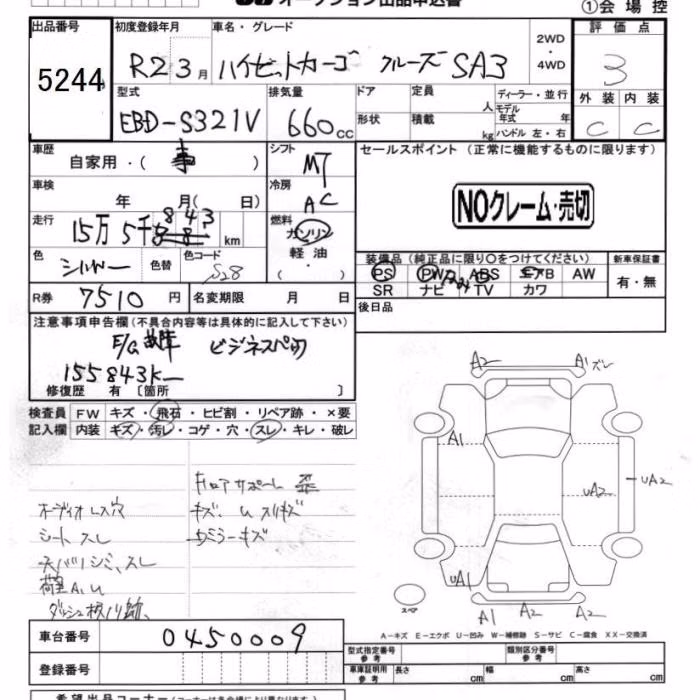 オークション出品申込書
①会場控
出品番号 初度登録年月 車名・グレード 評価点
5244 R2 3月 ハイゼットカーゴ クルーズ SA3 2WD・4WD 3
型式 排気量 ドア 定員 人 ディーラー・並行 外装 内装
EBD-S321V 660cc 形状 積載 kg モデル年式 年 ハンドル 左・右 C C
車歴 自家用・( 事 ) シフト MT セールスポイント (正常に機能するものに限ります)
車検 年 月( 日) 冷房 AC NOクレーム・売切
走行 15万 5千 843 km 燃料 ガソリン 軽油 ・( )
色 シルバー 色替 色コード S28
装備品 (純正品に限り○をつけてください) 新車保証書
PS PW ABS エアB AW 有・無
SR ナビ TV カワ
R券 7510円 名変期限 月 日 後日品
注意事項申告欄 (不具合内容等は具体的に記入して下さい)
E/G故障 ビジネスペダ
155843K
修復歴 有 〔箇所 〕
検査員 FW キズ・飛石・ヒビ割・リペア跡・×要
記入欄 内装 キズ・汚レ・コゲ・穴・スレ・キレ・破レ
フロアサポート 歪
オーディオレス穴 キズ、U スリキズ
シート スレ ドミラーキズ
天バリシミ、スレ
荷室A、U
A2 A1 ズレ
A1 UA2 UA2
UA1
スペア A1 A2 A2
A−キズ E−エクボ U−凹み W−補修跡 S−サビ C−腐食 XX−交換済
車台番号 0450009
型式指定番号 参考 類別区分番号 参考
登録番号 車庫証明用 参考 長さ cm 幅 cm 高さ cm
希望出品コーナー